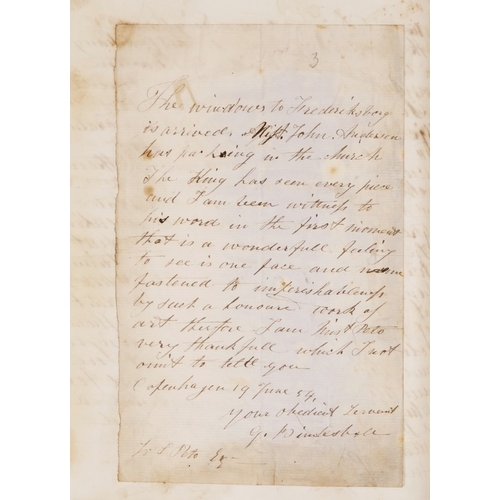 3
The windows to Frederiksborg
is arrived. John Andersen
has packing in the church
The King has seen every piece
and I am been wittness to
his word in the first moment
that is a wonderfull feeling
to see is one face and name
fastened to imperishableness
by such a honoure work of
art therfore I am Peto
very thankfull which I not
omit to tell you
Copenhagen 19 June 59.
your obedient Servant
G.
S Peto Esq